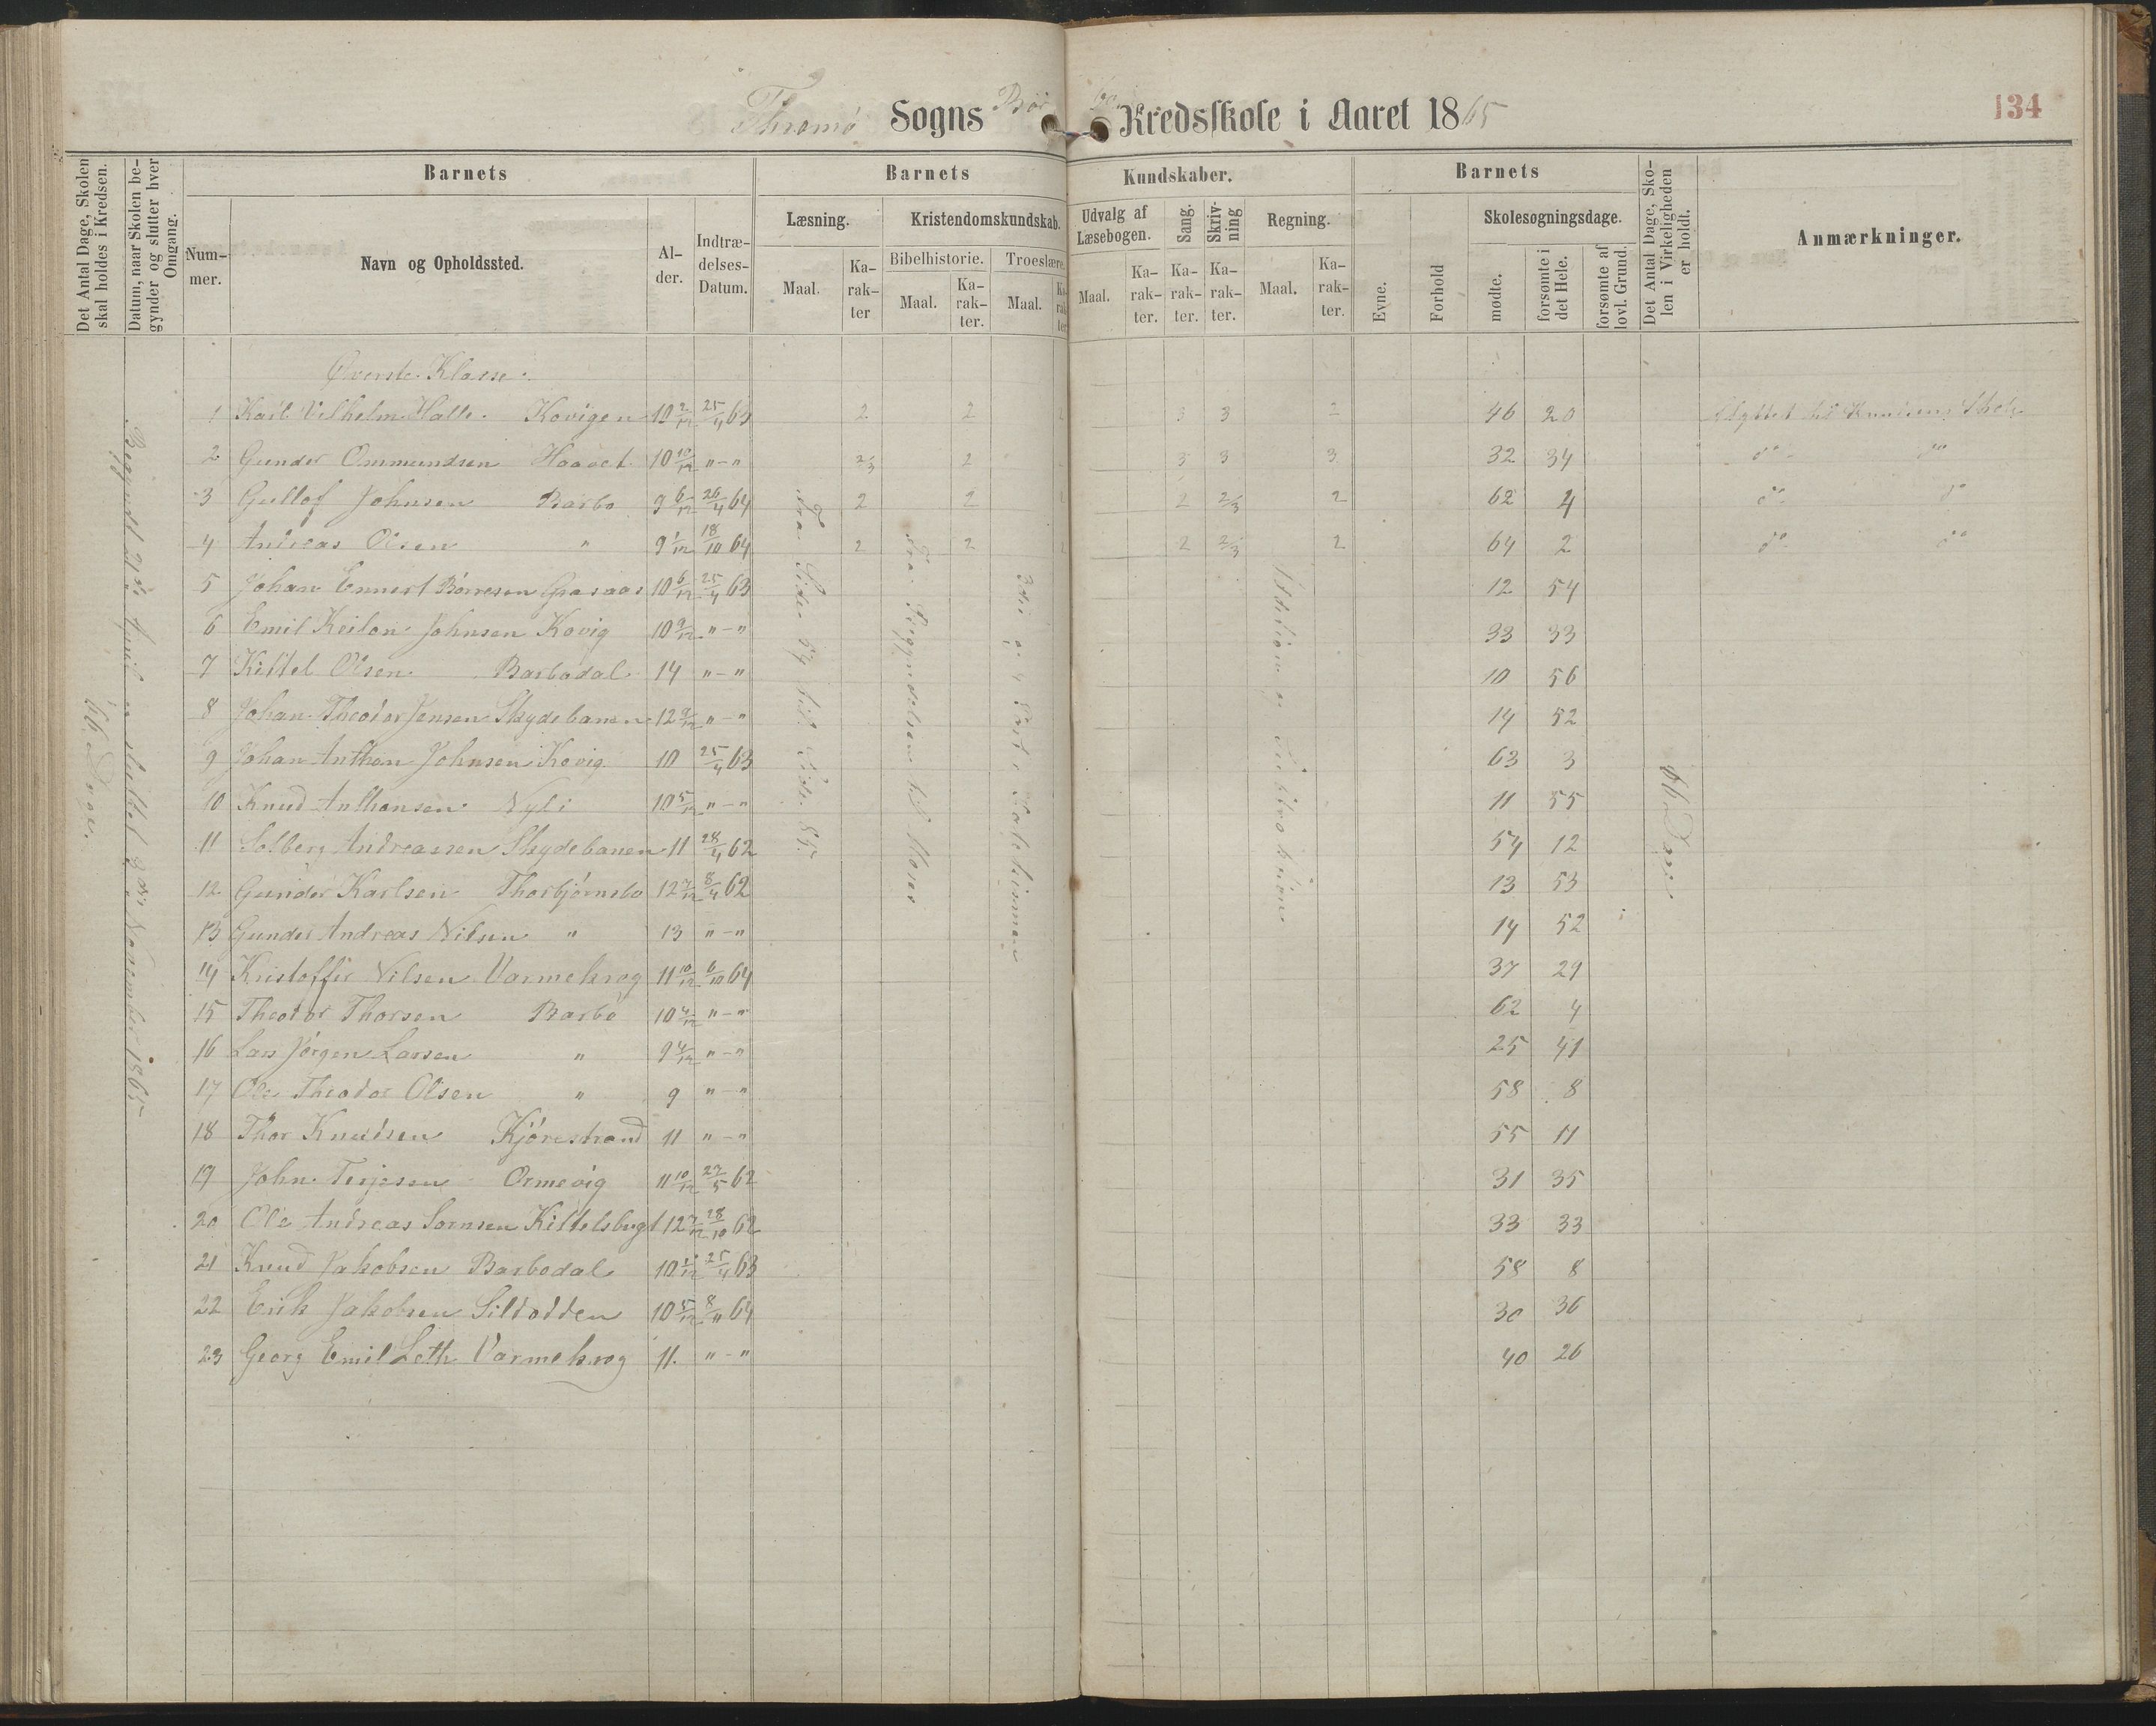 Thromø Sogns Kredsskole i Aaret 1865
134
Det Antal Dage, Skolen skal holdes i Kredsen.
Datum, naar Skolen begynder og slutter hver Omgang.
Barnets
Barnets
Kundskaber.
Barnets
Det Antal Dage, Skolen i Virkeligheden er holdt.
Anmærkninger.
Nummer.
Navn og Opholdssted.
Alder.
Indtrædelses-Datum.
Læsning.
Kristendomskundskab.
Udvalg af Læsebogen.
Sang.
Skrivning
Regning.
Evne.
Forhold
Skolesøgningsdage.
Bibelhistorie.
Troeslære.
Maal.
Karakter
Maal.
Karakter.
Maal.
Karakter
Maal.
Karakter.
Karakter.
Karakter.
Maal.
Karakter.
mødte.
forsømte i det Hele.
forsømte af lovl. Grund.
66 Dage.
Begyndt 21de April og sluttet 3die November 1865
Fra Side 54 til Side 85
Fra Begyndelsen til Moses
Øverste Klasse.
1 Karl Vilhelm Halle. Kovigen 10 2/12 25/4 63 2 2 2 3 3 2 46 20 Flyttet til Knudsens Skole
2 Gunder Ommundsen Haavet 10 10/12 "-" 2/3 2 3 3 3 32 34 do do
3 Gullof Johnsen Barbo 9 6/12 26/4 64 2 2 2 2/3 2 62 4 do do
4 Andreas Olsen " 9 1/12 18/10 64 2 2 2 2 2/3 2 64 2 do do
5 Johan Ennert Børresen Gaasaas 10 6/12 25/4 63 12 54
6 Emil Keilon Johnsen Kovig 10 9/12 "-" 33 33
7 Kittel Olsen Barbodal 14 "-" 10 56
8 Johan Theodor Jensen Skydebanen 12 9/12 "-" 14 52
9 Johan Anthon Johnsen Kovig 10 25/4 63 63 3
10 Knud Anthonsen Nyli 10 5/12 "-" 11 55
11 Solberg Andreassen Skydebanen 11 28/4 62 54 12
12 Gunder Karlsen Thorbjørnsbo 12 7/12 8/4 62 13 53
13 Gunder Andreas Nilsen " 13 "-" 14 52
14 Kristoffer Nilsen Varmekrog 11 10/12 6/10 64 37 29
15 Theodor Thorsen Barbo 10 4/12 "-" 62 4
16 Lars Jørgen Larsen " 9 4/12 "-" 25 41
17 Ole Theodor Olsen " 9 "-" 58 8
18 Thor Knudsen Kjørestrand 11 "-" 55 11
19 John Terjesen Ormevig 11 10/12 27/5 62 31 35
20 Ole Andreas Sørnsen Kittelsbugt 12 7/12 28/10 62 33 33
21 Knud Jakobsen Barbodal 10 25/4 63 58 8
22 Erik Jakobsen Sildodden 10 5/12 8/11 64 30 36
23 Georg Emil Leth Varmekrog 11. "-" 40 26
66 Dage